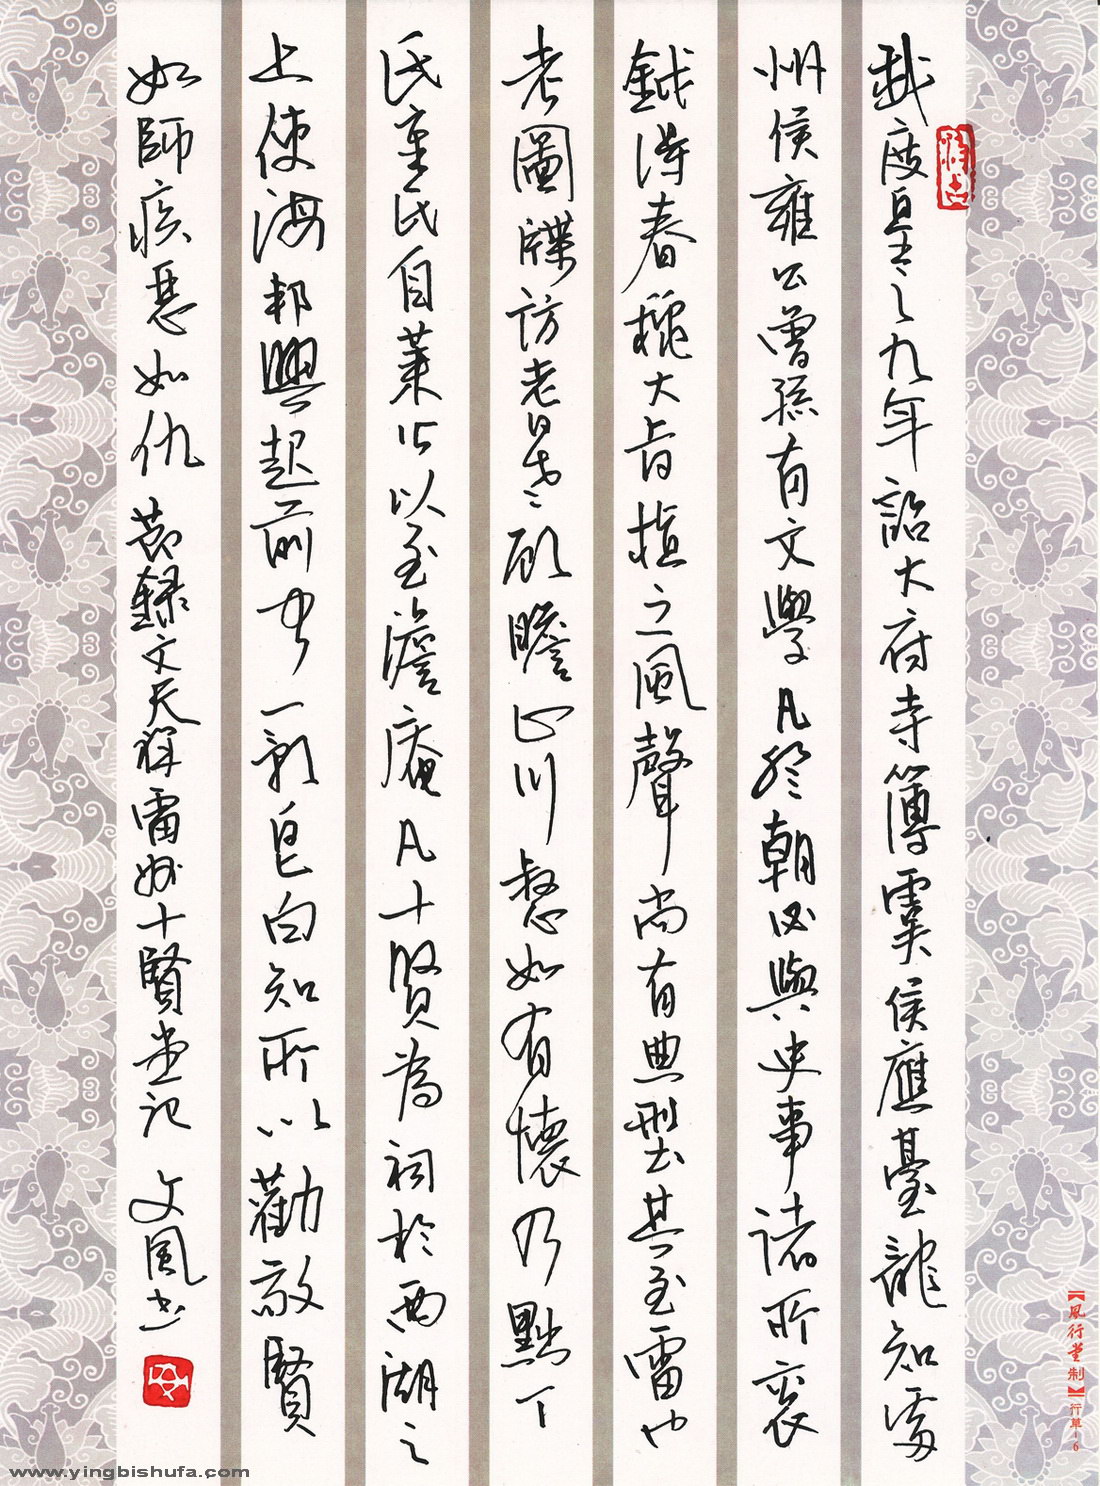 我度皇之九年詔大府寺簿虞侯應龍知雷
州侯雍公曾孫有文學凡於朝必與史事諸所褒
鉞得春穐大旨植之風聲尚有典型其至雷也
考圖牒訪老是老顧瞻山川愁如有懷乃點丁
氏重氏自萊公以至澹庵凡十賢為祠於西湖之
上使海邦興起前守一新皂白知所以勸敬賢
如師疾惡如仇 節錄文天祥雷州十賢堂記 文風書
【風行堂制】行草-6
www.yingbishufa.com